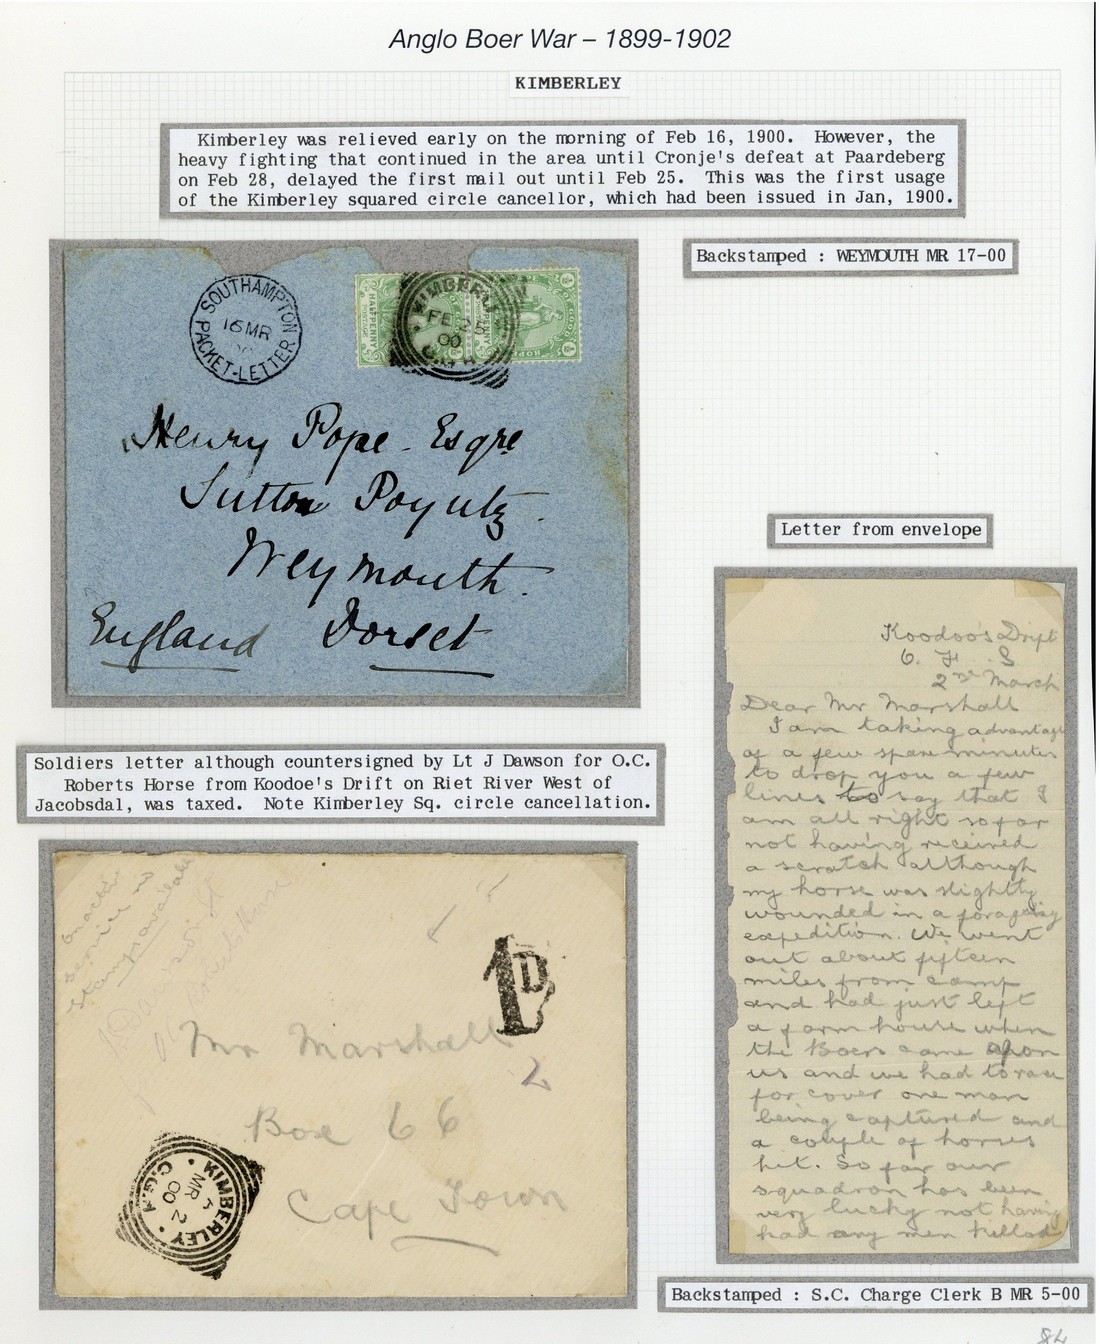 Anglo Boer War – 1899-1902
KIMBERLEY
Kimberley was relieved early on the morning of Feb 16, 1900. However, the
heavy fighting that continued in the area until Cronje's defeat at Paardeberg
on Feb 28, delayed the first mail out until Feb 25. This was the first usage
of the Kimberley squared circle cancellor, which had been issued in Jan, 1900.
Backstamped : WEYMOUTH MR 17-00
SOUTHAMPTON
16 MR
PACKET-LETTER
HALFPENNY
POSTAGE
KIMBERLEY
FE 25
00
HOPE
Henry Pope - Esqre
Sutton Poyntz.
Weymouth.
England Dorset
Letter from envelope
Koodoo's Drift
O. F. S
2nd March
Dear Mr Marshall
I am taking advantage
of a few spare minutes
to drop you a few
lines to say that I
am all right so far
not having received
a scratch although
my horse was slightly
wounded in a foraging
expedition. We went
out about fifteen
miles from camp
and had just left
a farm house when
the Boers came upon
us and we had to race
for cover one man
being captured and
a couple of horses
hit. So far our
squadron has been
very lucky not having
had any men killed
Soldiers letter although countersigned by Lt J Dawson for O.C.
Roberts Horse from Koodoe's Drift on Riet River West of
Jacobsdal, was taxed. Note Kimberley Sq. circle cancellation.
on active
service no
stamp available
T
1D
Mr Marshall
2
Box 66
Cape Town
KIMBERLEY
MR 2
00
C.G.H.
Backstamped : S.C. Charge Clerk B MR 5-00
84